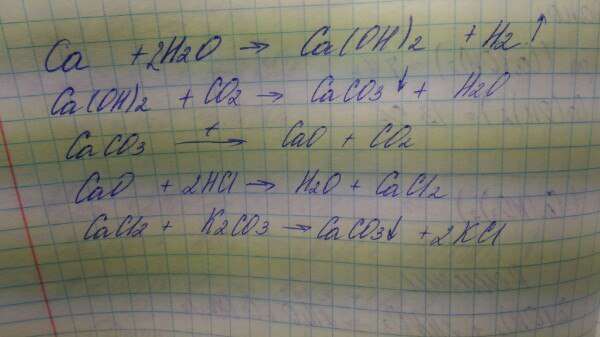 Ca + 2H2O → Ca(OH)2 + H2↑
Ca(OH)2 + CO2 → CaCO3↓ + H2O
CaCO3 —t→ CaO + CO2
CaO + 2HCl → H2O + CaCl2
CaCl2 + K2CO3 → CaCO3↓ + 2KCl